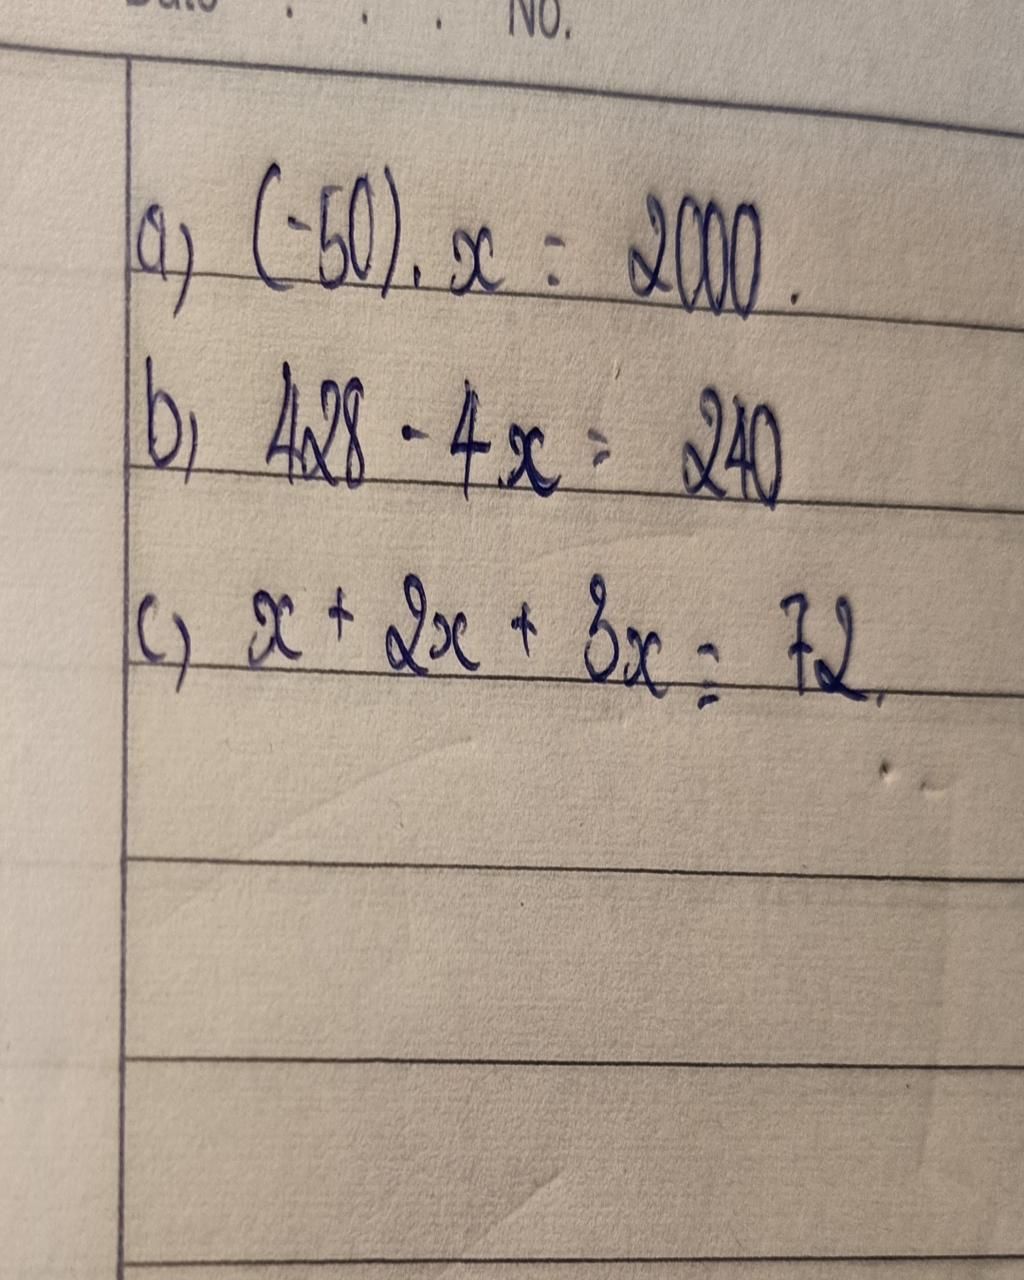 No.
a) (-50). x = 2000.
b) 428 - 4.x = 240
c) x + 2x + 3x = 72.